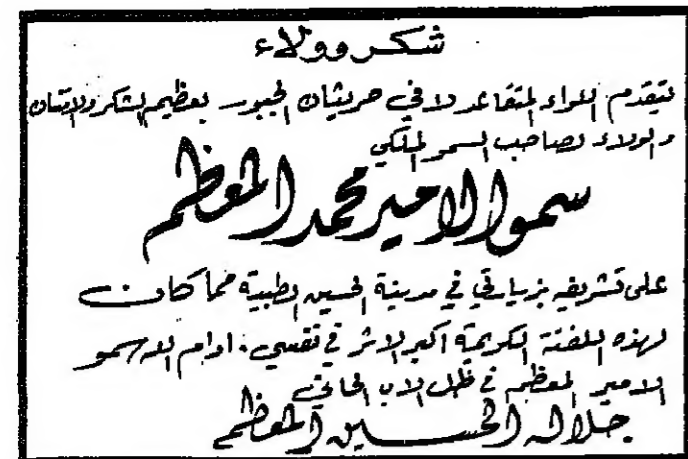 شكر وولاء
يتقدم اللواء المتقاعد لافي حريثان الجبور بعظيم الشكر والامتنان
والولاء لصاحب السمو الملكي
سمو الامير محمد المعظم
على تشريفه بزيارتي في مدينة الحسين الطبية مما كان
لهذه اللفتة الكريمة اكبر الاثر في نفسي. ادام الله سمو
الامير المعظم في ظل الاب الحاني
جلالة الحسين المعظم